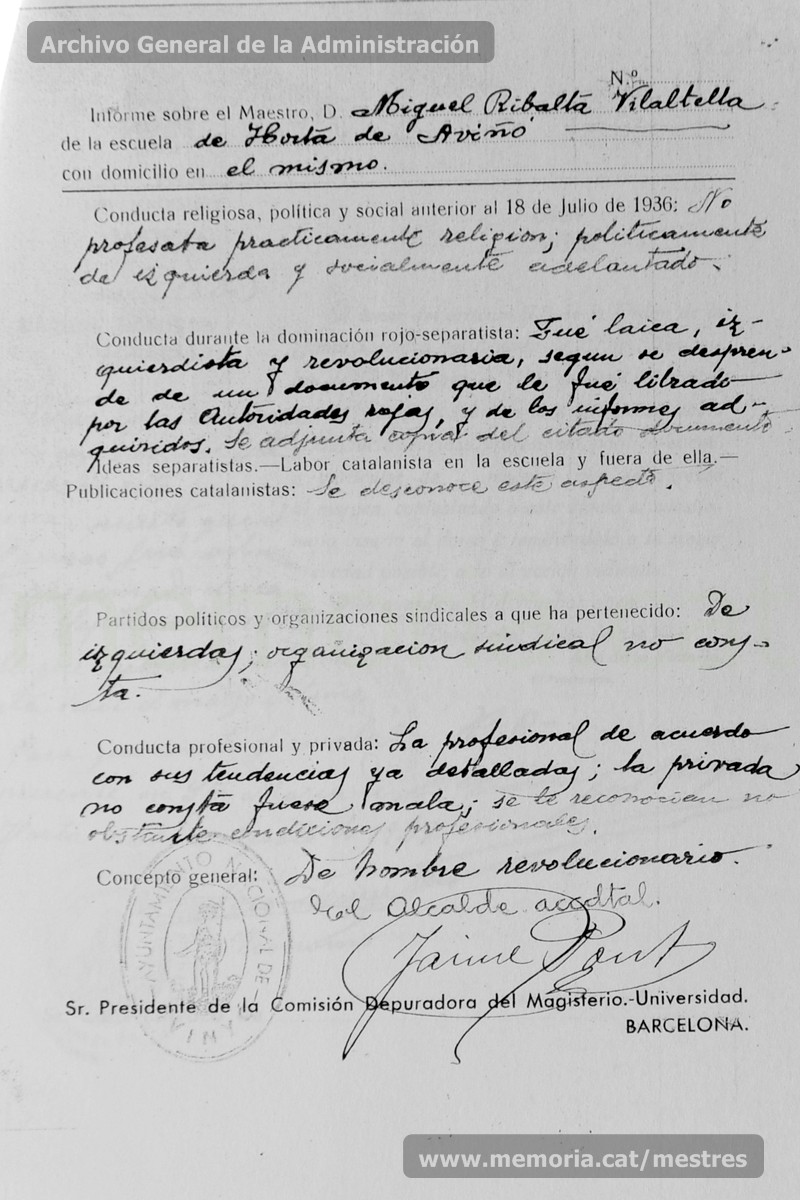 Archivo General de la Administración
N.º
Informe sobre el Maestro, D. Miguel Ribalta Vilaltella
de la escuela de Horta de Aviñó
con domicilio en el mismo.
Conducta religiosa, política y social anterior al 18 de Julio de 1936: No
profesaba practicamente religion; politicamente
de izquierda y socialmente adelantado.
Conducta durante la dominación rojo-separatista: Fué laica, iz-
quierdista y revolucionaria, segun se despren-
de de un documento que le fué librado
por las Autoridades rojas, y de los informes ad-
quiridos. Se adjunta copia del citado documento
Ideas separatistas.—Labor catalanista en la escuela y fuera de ella.—
Publicaciones catalanistas: Se desconoce este aspecto.
Partidos políticos y organizaciones sindicales a que ha pertenecido: De
izquierdas; organizacion sindical no cons-
ta.
Conducta profesional y privada: La profesional de acuerdo
con sus tendencias ya detalladas; la privada
no consta fuese mala; se le reconocian no
obstante condiciones profesionales.
Concepto general: De hombre revolucionario.
El Alcalde acctal.
Jaime Pont
AYUNTAMIENTO NACIONAL DE
Sr. Presidente de la Comisión Depuradora del Magisterio.-Universidad.
BARCELONA.
www.memoria.cat/mestres